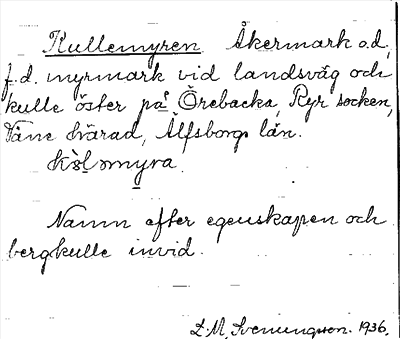 Kullemyren Åkermark o.d.,
f.d. myrmark vid landsväg och
kulle öster på Örebacka, Ryr socken,
Väne härad, Älfsborgs län.
Namn efter egenskapen och
bergkulle invid.
L. M. Svenungsson. 1936.